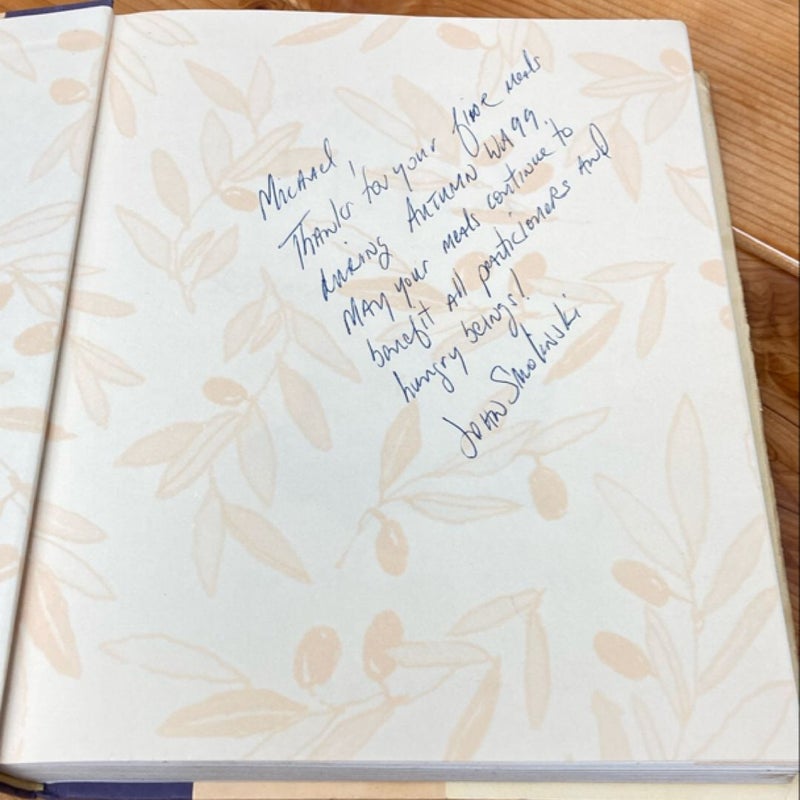 Michael,
Thanks for your fine meals
during Autumn WA99.
May your meals continue to
benefit all practicioners and
hungry beings!
John Smolinski